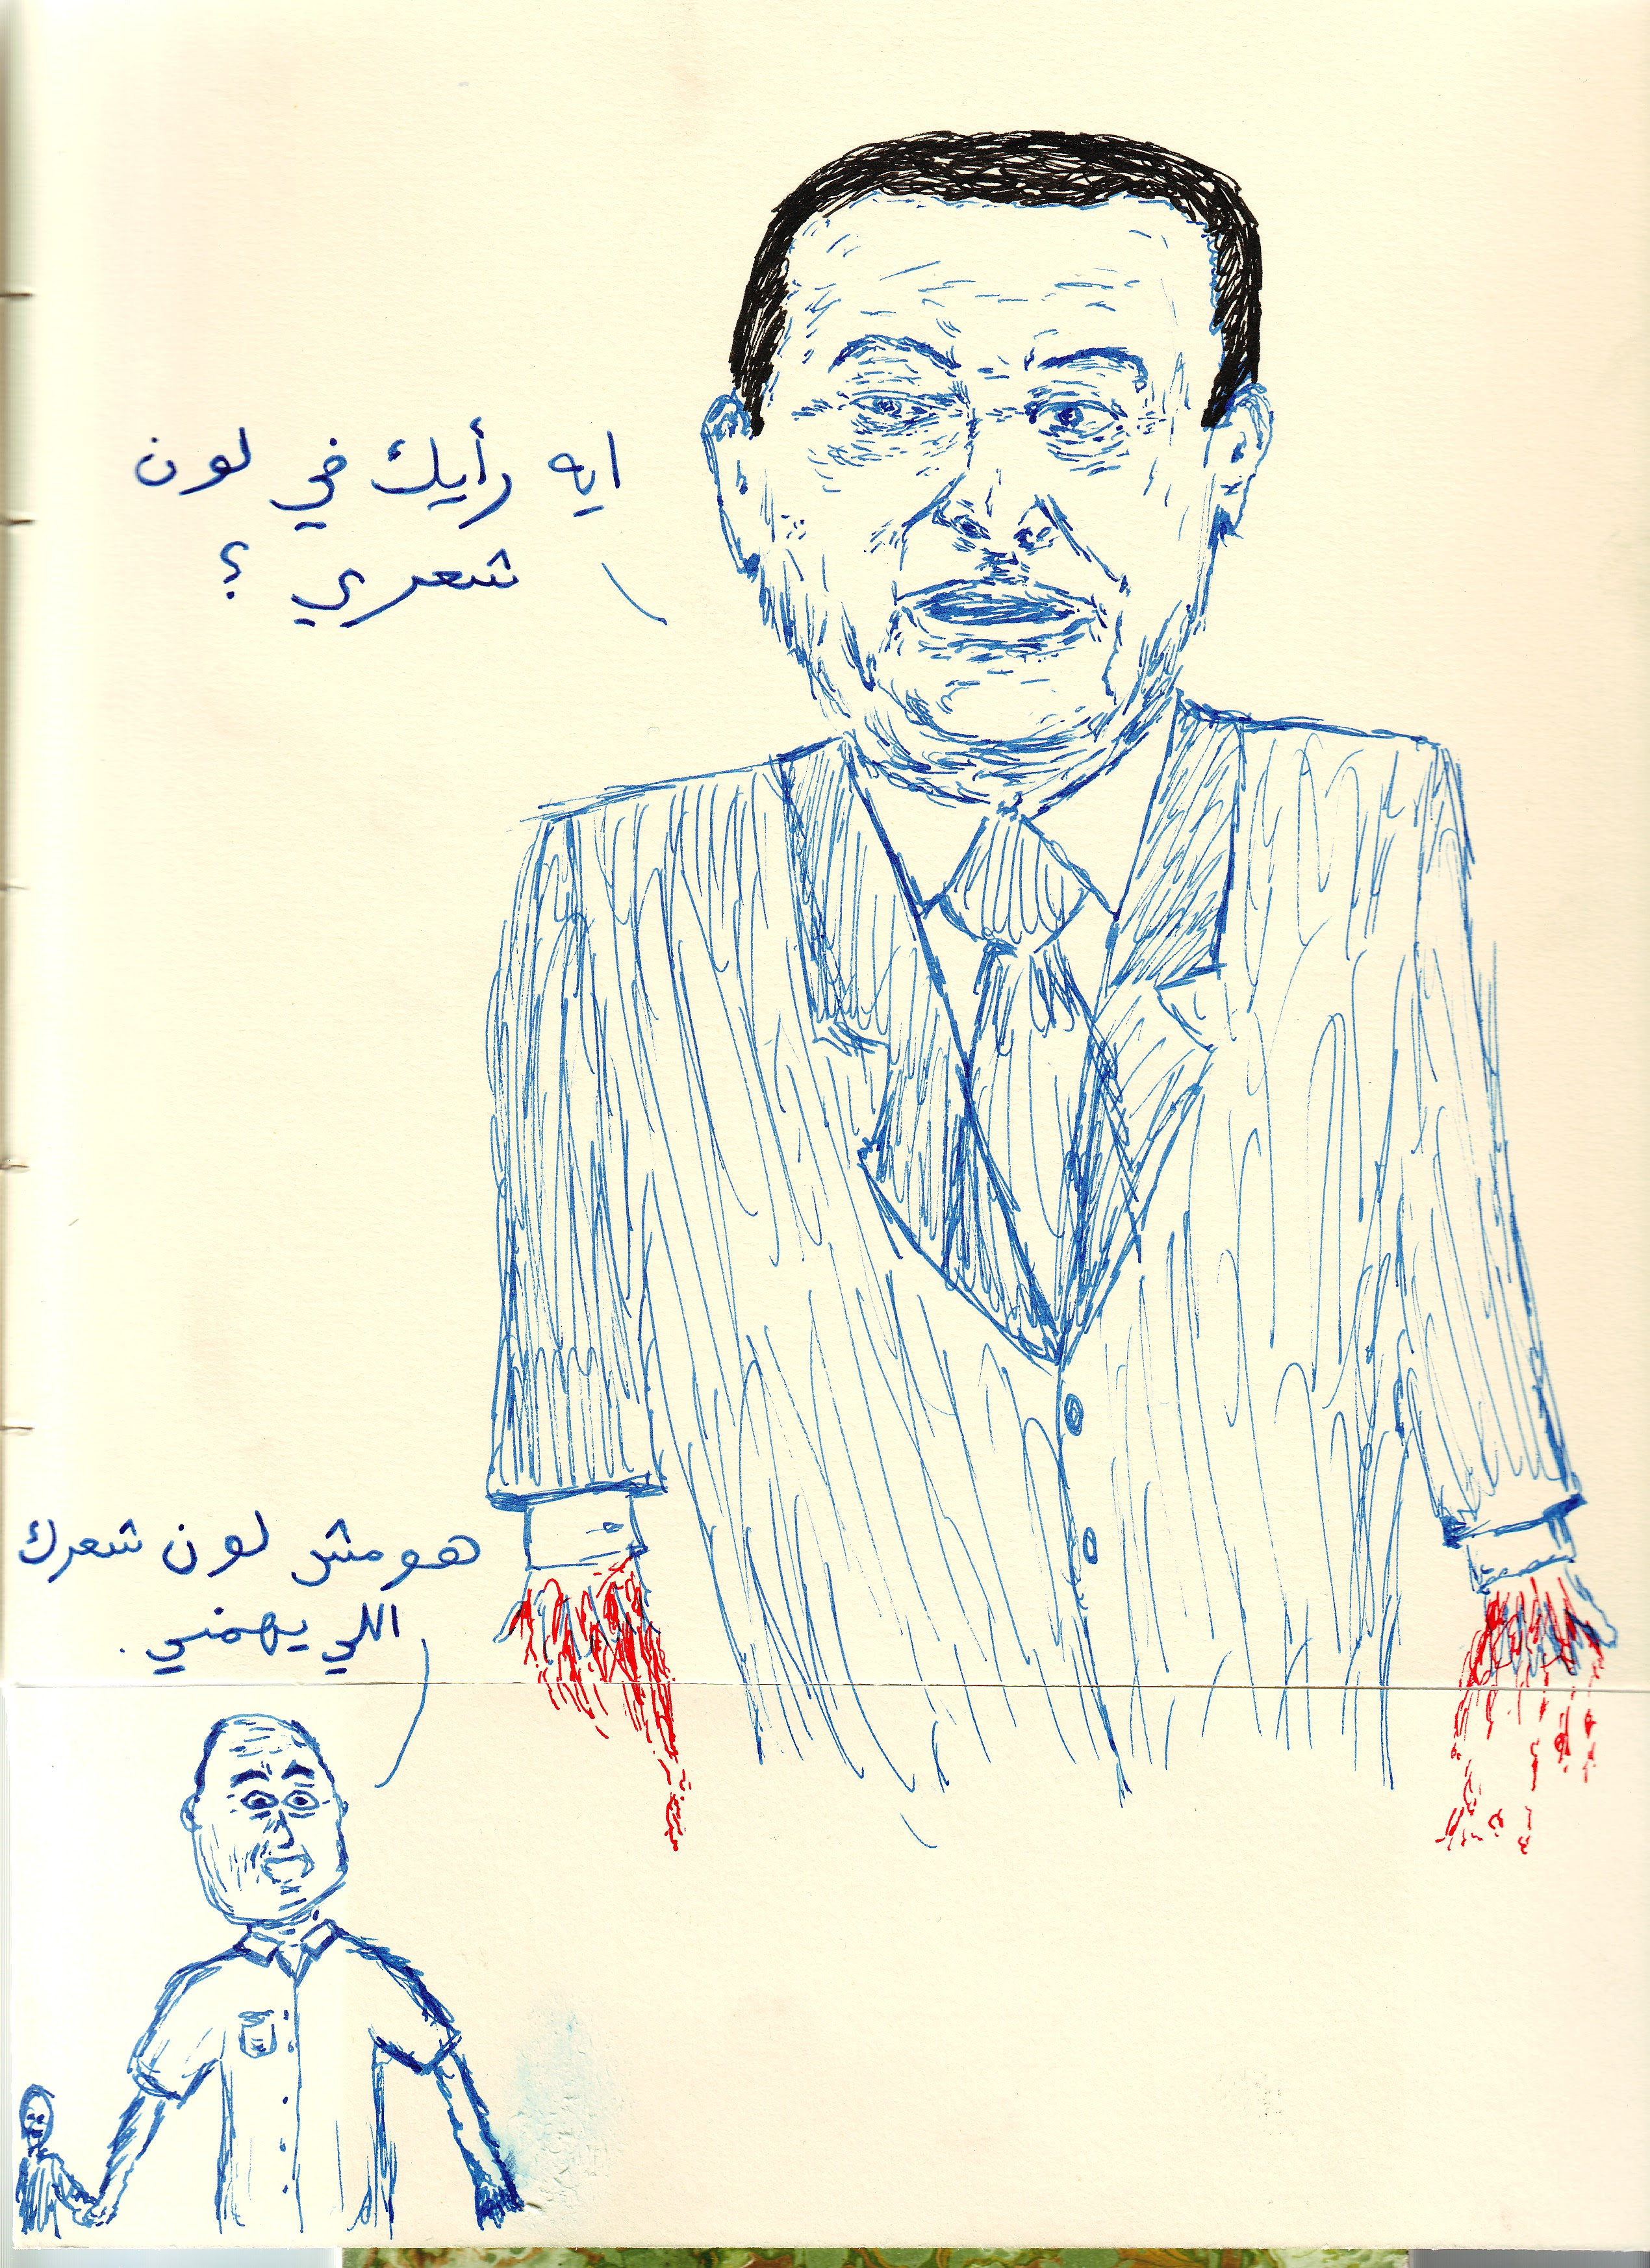 ايه رأيك في لون
شعري ؟
هو مش لون شعرك
اللي يهمني .